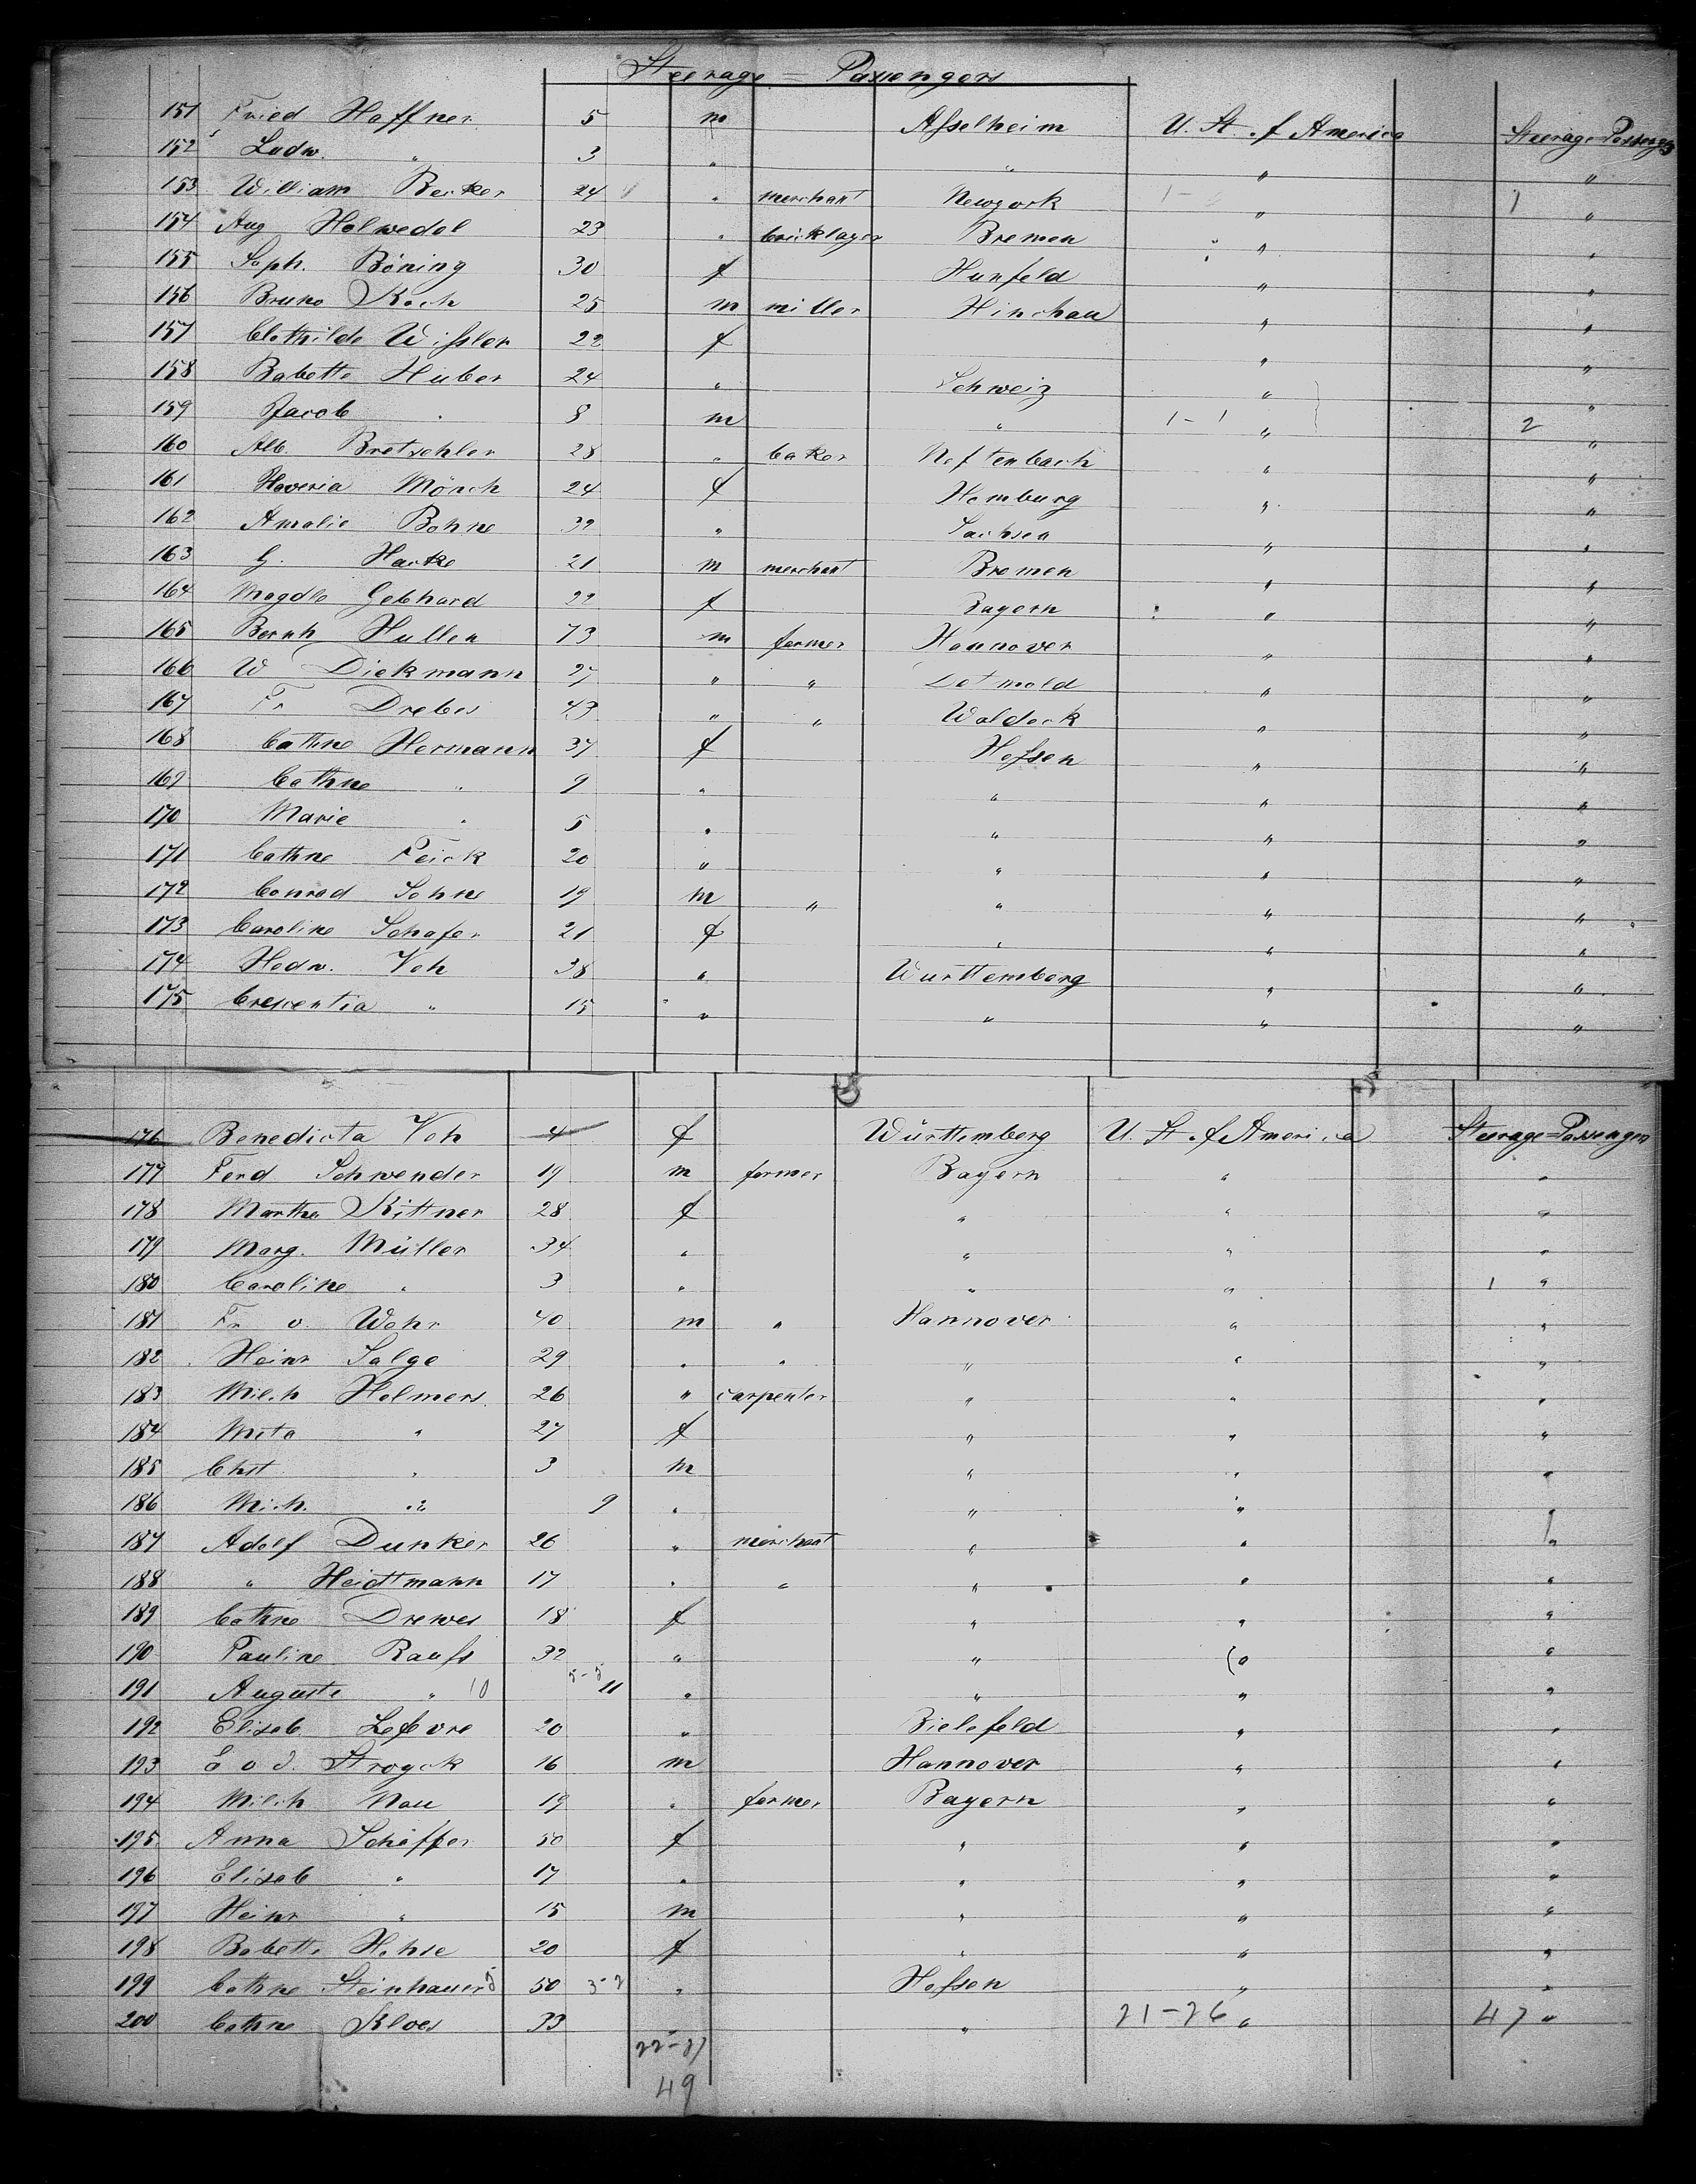 Steerage = Passengers
151 Fried Haffner 5 m Asselheim U. St. of America Steerage-Passengers
152 Ludw. " 3 " " " "
153 William Becker 24 " merchant Newyork 1- " 1 "
154 Aug Helwedel 23 " bricklayer Bremen " "
155 Soph. Böning 30 f Hunfeld " "
156 Bruno Koch 25 m miller Hinchau " "
157 Clothilde Wissler 22 f " "
158 Babette Huber 24 " Schweiz " "
159 Jacob " 8 m " 1-1 " 2 "
160 Alb. Bretschler 28 " baker Neftenbach " "
161 Haveria Mönch 24 f Homburg " "
162 Amalie Bohne 32 " Sachsen " "
163 G. Hacke 21 m merchant Bremen " "
164 Magdle Gebhard 22 f Bayern " "
165 Bernh Hullen 73 m farmer Hannover " "
166 W Diekmann 27 " " Detmold " "
167 Fr Drebes 43 " " Waldeck " "
168 Cathne Hermann 37 f Hessen " "
169 Cathne " 9 " " " "
170 Marie " 5 " " " "
171 Cathne Feick 20 " " " "
172 Conrad Sohne 19 m " " " "
173 Caroline Schafer 21 f " " "
174 Hedw. Veh 38 " Wurttemberg " "
175 Crescentia " 15 " " " "
176 Benedicta Veh 4 f Württemberg U. St. of America Steerage=Passenger
177 Ferd Schwender 19 m farmer Bayern " "
178 Marthe Kittner 28 f " " "
179 Marg. Müller 34 " " " "
180 Caroline " 3 " " " 1 "
181 Fr v. Wehr 40 m " Hannover " "
182 Heinr Salge 29 " " " " "
183 Mich Helmers 26 " carpenter " " "
184 Meta " 27 f " " "
185 Chst " 3 m " " "
186 Mich. " 9 " " " "
187 Adolf Dunker 26 " merchant " " "
188 " Heidtmann 17 " " " " "
189 Cathne Drewes 18 f " " "
190 Pauline Raufs 32 " " " "
191 Auguste " 10 5-5 11 " " " "
192 Elisab. Lefevre 20 " Bielefeld " "
193 Stroyck 16 m Hannover " "
194 Mich Nau 19 " farmer Bayern " "
195 Anna Schäffer 50 f " " "
196 Elisab " 17 " " " "
197 Heinr " 15 m " " "
198 Babette Hohse 20 f " " "
199 Cathne Steinhauer 50 3-2 " Hessen " "
200 Cathne Kloes 33 " 21-26 " 47 "
22-27
49